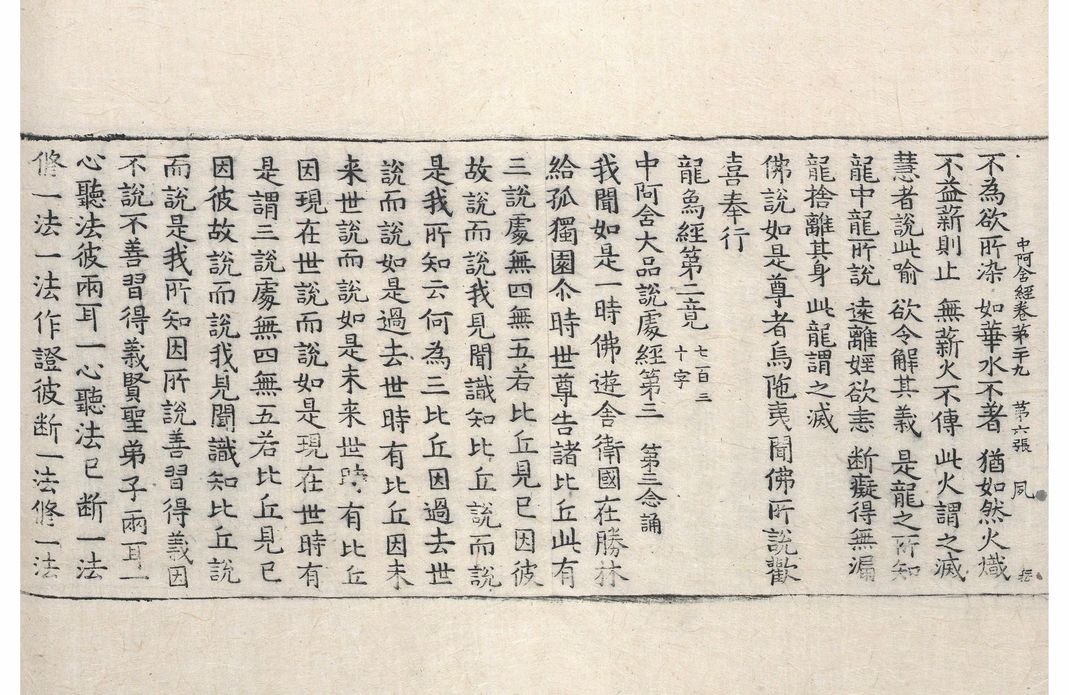 中阿含經卷第二十九 第六張 夙
不為欲所染 如華水不著 猶如然火熾
不益薪則止 無薪火不傳 此火謂之滅
慧者說此喻 欲令解其義 是龍之所知
龍中龍所說 遠離婬欲恚 断癡得無漏
龍捨離其身 此龍謂之滅
佛說如是尊者烏陁夷聞佛所說歡
喜奉行
龍象經第二竟 七百三十字
中阿含大品說處經第三 第三念誦
我聞如是一時佛遊舍衛國在勝林
給孤獨園尒時世尊告諸比丘此有
三說處無四無五若比丘見已因彼
故說而說我見聞識知比丘說而說
是我所知云何為三比丘因過去世
說而說如是過去世時有比丘因未
来世說而說如是未来世時有比丘
因現在世說而說如是現在世時有
是謂三說處無四無五若比丘見已
因彼故說而說我見聞識知比丘說
而說是我所知因所說善習得義因
不說不善習得義賢聖弟子兩耳一
心聽法彼兩耳一心聽法已断一法
脩一法一法作證彼断一法脩一法